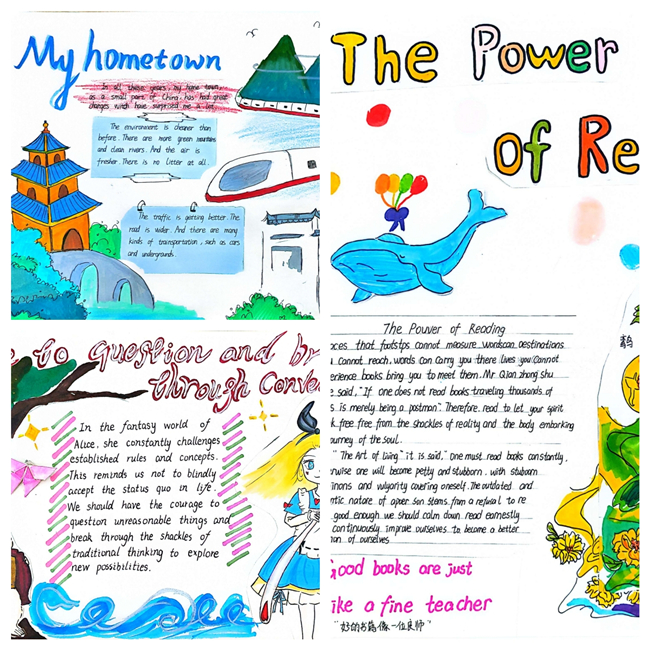 My hometown
In all these years, my home town,
as a small part of China, has had great
changes witch have surprised me a lot.
The environment is cleaner than
before. There are more green mountains
and clean rivers. And the air is
fresher. There is no litter at all.
The traffic is getting better. The
road is wider. And there are many
kinds of transportation, such as cars
and undergrounds.
The Power
of Re
The Power of Reading
ces that footstps cannot measure wordscan destinations
Cannot reach, words can carry you there lives you Cannot
erience books bring you to meet them. Mr Qian zhong shu
said, "If one does not read books traveling thousands of
s is merely being a postman". Therefore, read to let your spirit
k free free from the shackles of reality and the body embarking
ourney of the soul.
" The Art of living" it is said," one must read books constantly,
rwise one will become petty and stubborn. with stubborn
inons and vulgarity covering oneself. The outdated and
ntic nature of aper son stems from a refusal to re
good enough we should calm down read earnestly
continuously improve ourselves to become a better
ion of ourselves
Good books are just
ike a fine teacher
"好的书籍像一位良师"
to question and br
through Conve
In the fantasy world of
Alice, she constantly challenges
established rules and concepts.
This reminds us not to blindly
accept the status quo in life.
We should have the courage to
question unreasonable things and
break through the shackles of
traditional thinking to explore
new possibilities.